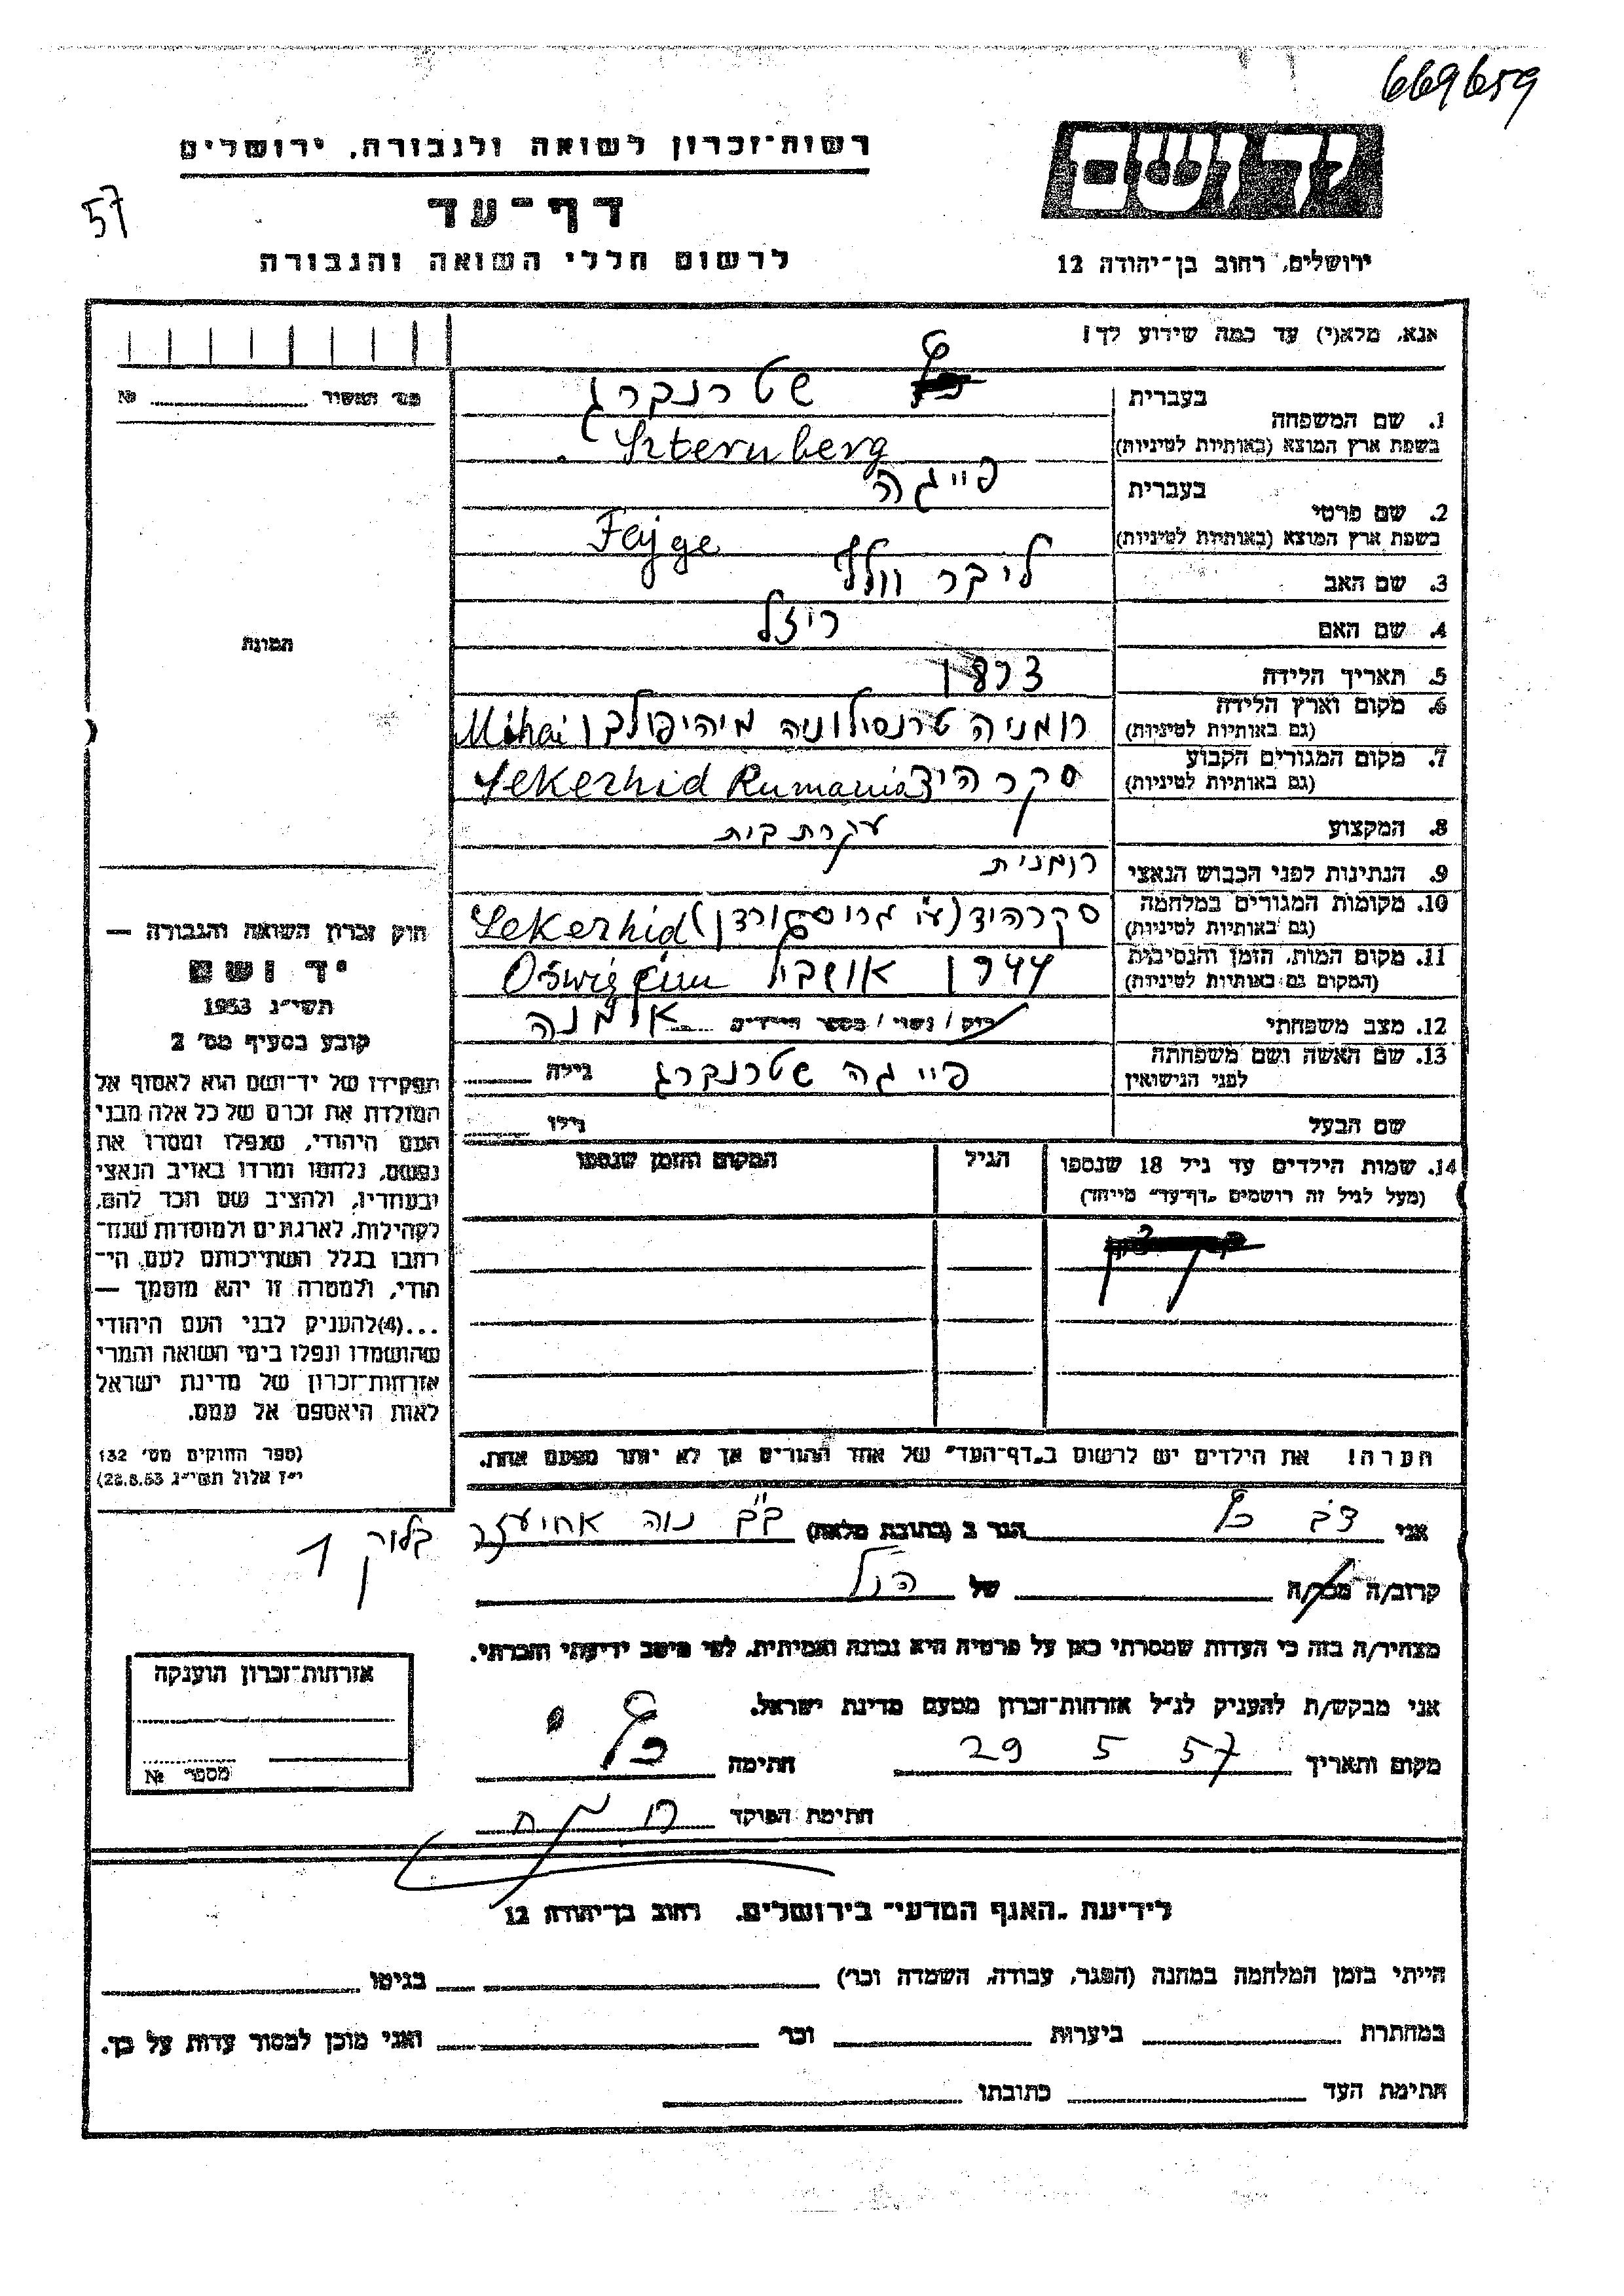 669659
רשות־זכרון לשואה ולגבורה, ירושלים
יד ושם
57
דף־עד
לרשום חללי השואה והגבורה
ירושלים, רחוב בן־יהודה 12
אנא, מלא(י) עד כמה שידוע לך!
מס' התשיר №
1. שם המשפחה
בעברית שטרנברג
בשפת ארץ המוצא (באותיות לטיניות) Szternberg
2. שם פרטי
בעברית פייגה
בשפת ארץ המוצא (באותיות לטיניות) Fajge
3. שם האב ליבר וולף
4. שם האם ריזל
תמונה
5. תאריך הלידה
6. מקום וארץ הלידה רומניה טרנסילוניה מיהיפולבו Mihai
(גם באותיות לטיניות)
7. מקום המגורים הקבוע סקרהיד Sekerhid Rumania
(גם באותיות לטיניות)
8. המקצוע עקרת בית
9. הנתינות לפני הכבוש הנאצי רומנית
10. מקומות המגורים במלחמה סקרהיד Sekerhid
(גם באותיות לטיניות)
11. מקום המות, הזמן והנסיבות 1944
(המקום גם באותיות לטיניות)
12. מצב משפחתי רוק/נשוי/מספר הילדים אלמנה
13. שם האשה ושם משפחתה פייגה שטרנברג גילה
לפני הנישואין
שם הבעל גילו
14. שמות הילדים עד גיל 18 שנספו הגיל המקום והזמן שנספו
(מעל לגיל זה רושמים „דף־עד” מיוחד)
חוק זכרון השואה והגבורה —
יד ושם
תשי"ג 1953
קובע בסעיף מס' 2
תפקידו של יד־ושם הוא לאסוף אל
המולדת את זכרם של כל אלה מבני
העם היהודי, שנפלו ומסרו את
נפשם, נלחמו ומרדו באויב הנאצי
ובעוזריו, ולהציב שם וזכר להם,
לקהילות, לארגונים ולמוסדות שנח־
רבו בגלל השתייכותם לעם הי־
הודי, ולמטרה זו יהא מוסמך —
...(4) להעניק לבני העם היהודי
שהושמדו ונפלו בימי השואה והמרי
אזרחות־זכרון של מדינת ישראל
לאות היאספם אל עמם.
(ספר החוקים מס' 132
י"ז אלול תשי"ג 28.8.53)
הערה! את הילדים יש לרשום ב„דף־העד” של אחד ההורים אך לא יותר מפעם אחת.
אני צבי כץ הגר ב (כתובת מלאה) נוה אחיעזר בלוק 1
קרוב/ה מכר/ה של הנ"ל
מצהיר/ה בזה כי העדות שמסרתי כאן על פרטיה היא נכונה ואמיתית, לפי מיטב ידיעתי והכרתי.
אני מבקש/ת להעניק לנ"ל אזרחות־זכרון מטעם מדינת ישראל.
מקום ותאריך 29 5 57 חתימה כץ
חתימת הפוקד
אזרחות־זכרון הוענקה
מספר №
לידיעת „האגף המדעי” בירושלים, רחוב בן־יהודה 12
הייתי בזמן המלחמה במחנה (הסגר, עבודה, השמדה וכו') בגיטו
במחתרת ביערות וכו' ואני מוכן למסור עדות על כך.
חתימת העד כתובתו